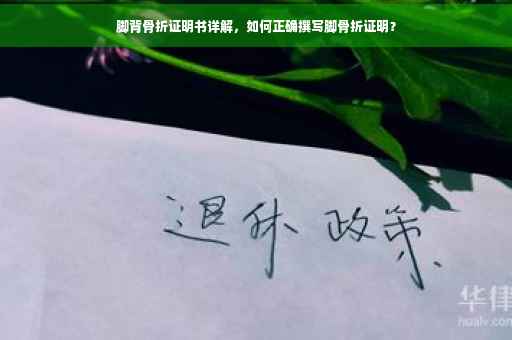 脚背骨折证明书详解，如何正确撰写脚骨折证明？
退休 政策
华律
hualv.com